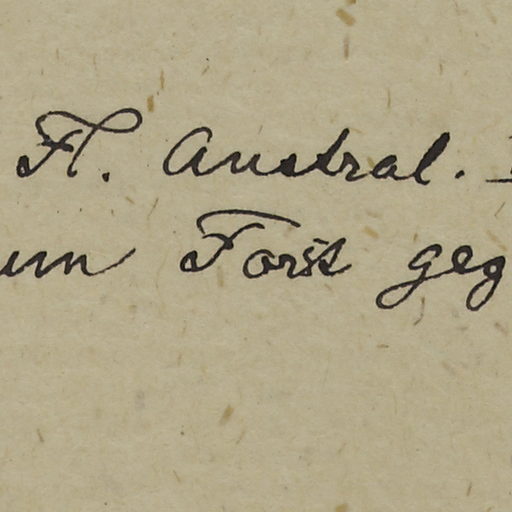 Fl. Austral.
um Forst geg